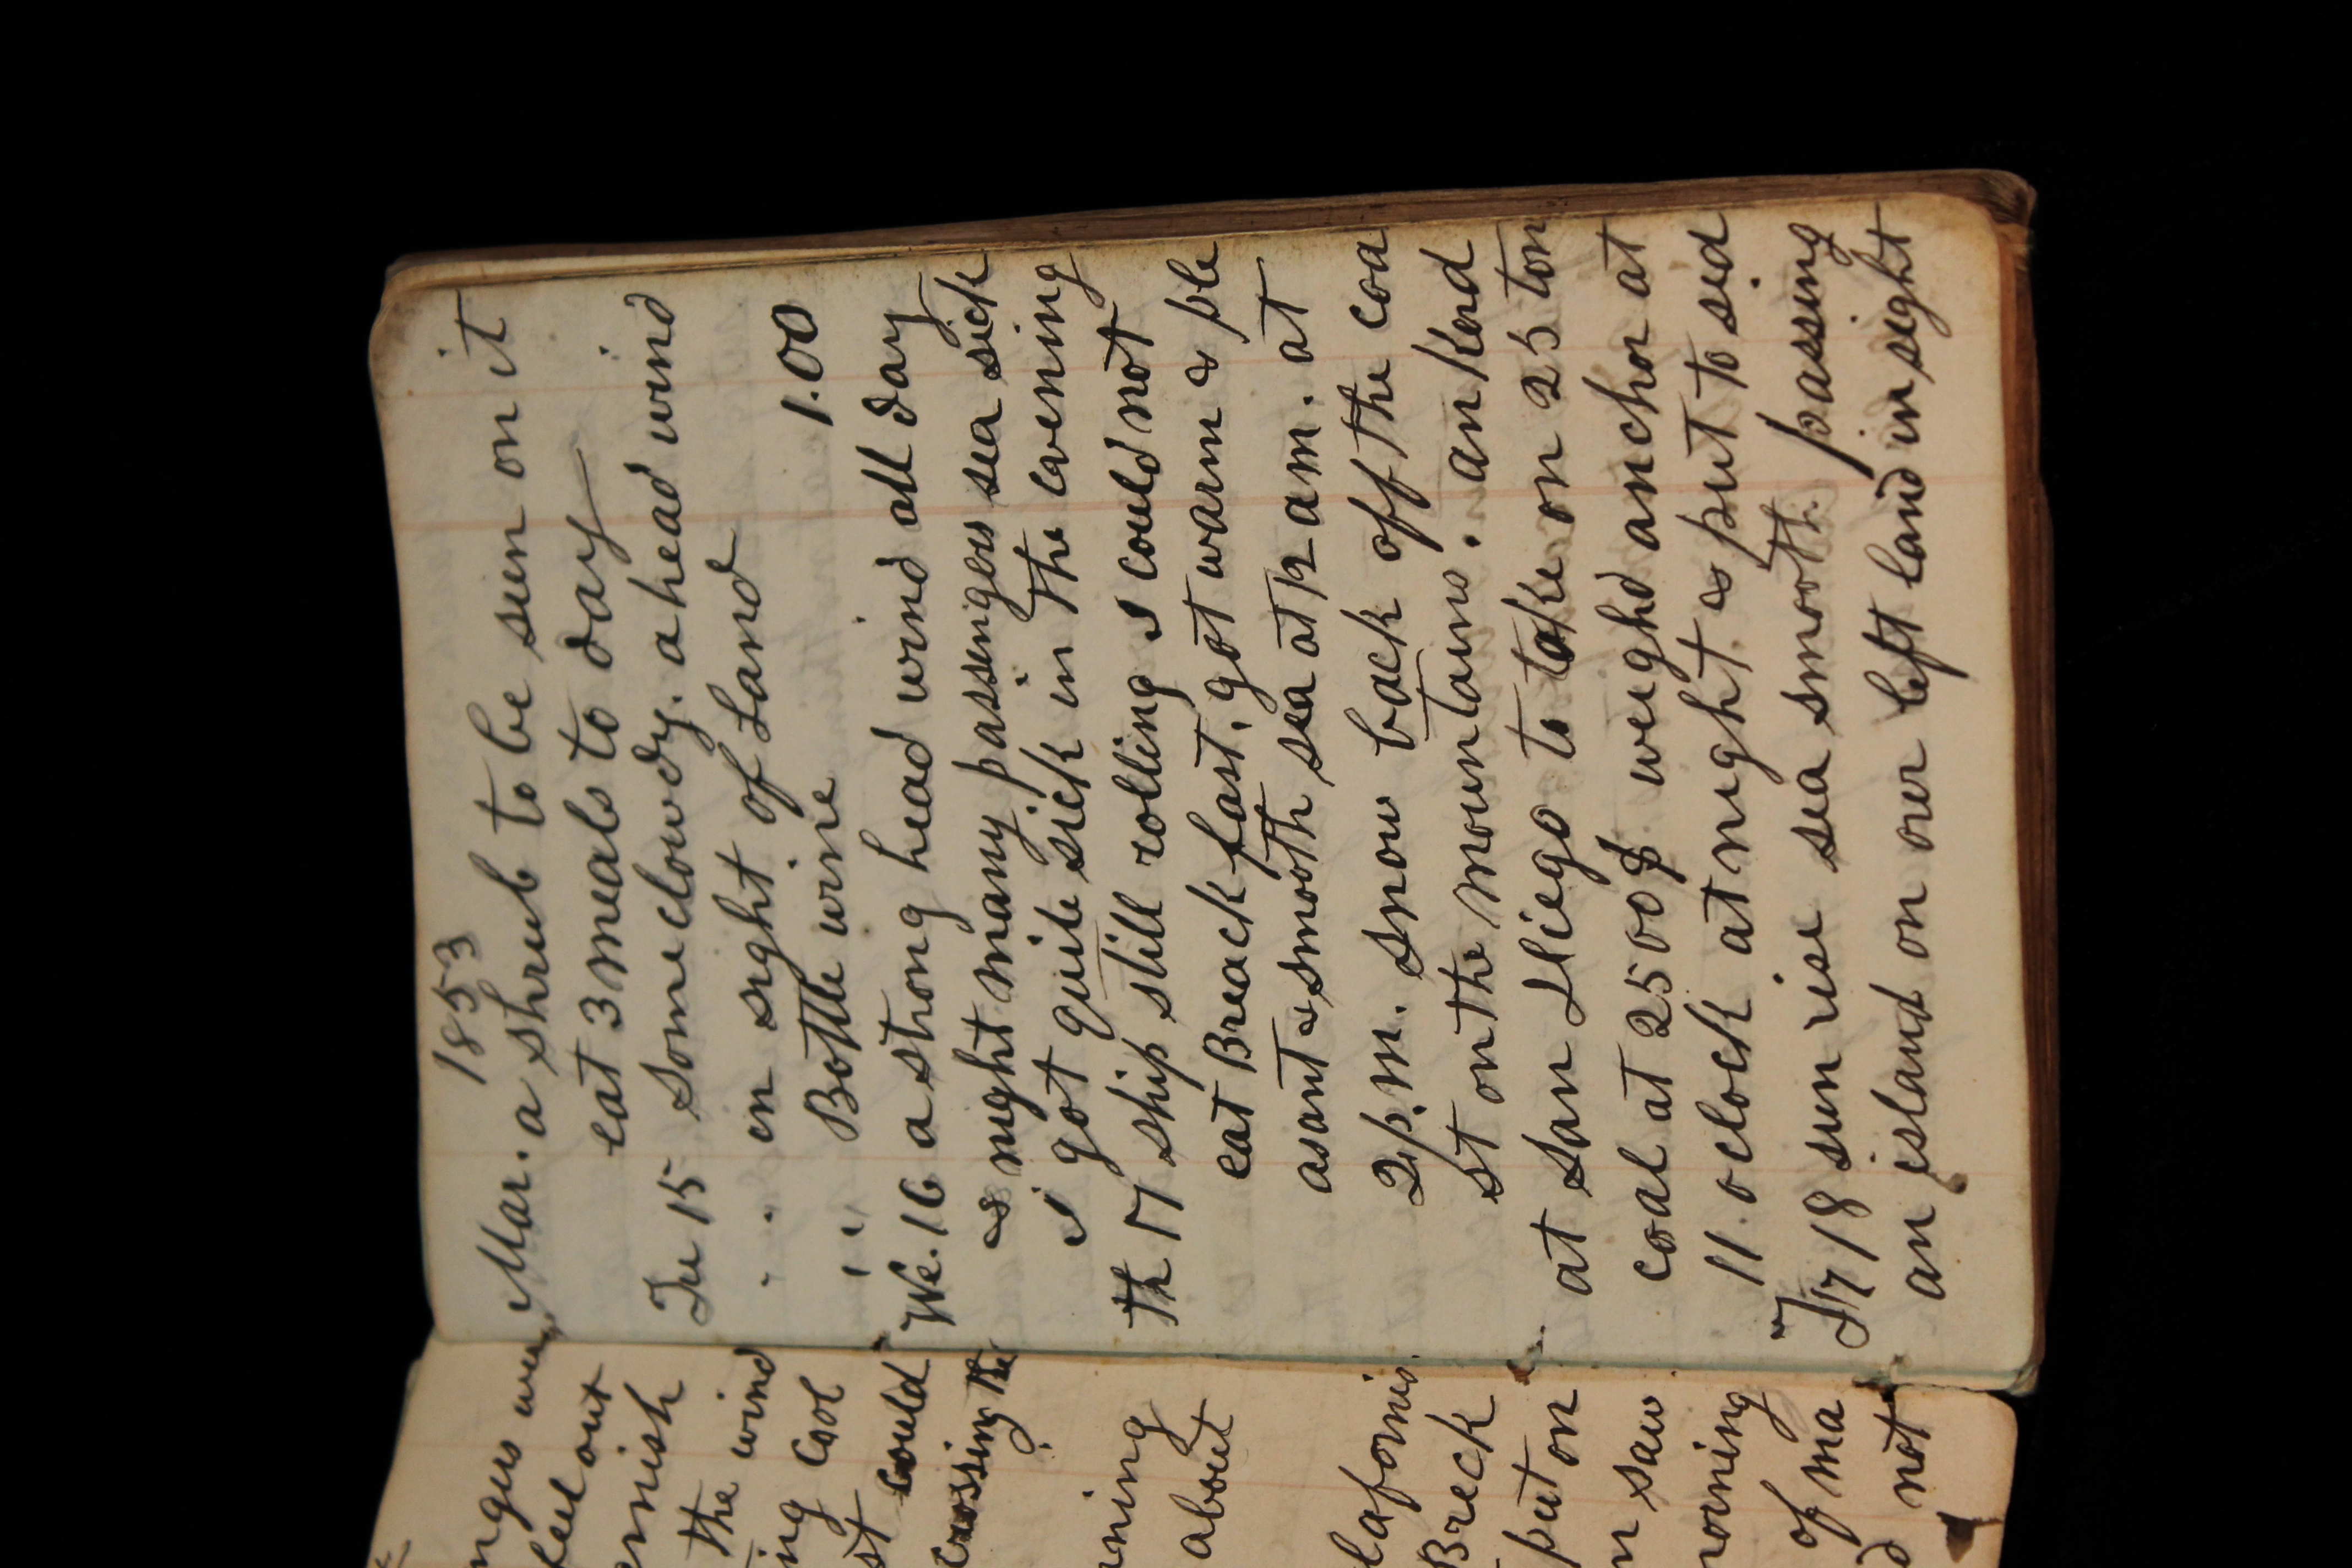 ngers were
feel out
ernish
the wind
ing cool
st could
crossing the
rning
about
lafornia
Breck
put on
n saw
morning
of ma
d not
1853
Mar. a shrub to be seen on it
eat 3 meals to day
Tu 15 Some clowdy. a head wind
. . in sight of Land
,, Bottle wine 1.00
We. 16 a strong head wind all day
& night many passengers sea sick
I got quite sick in the evening
Th 17 ship still rolling I could not
eat Breack fast, got warm & ple
asant & smooth sea at 12 am. at
2 p.m. snow back off the coa
st on the mountains. ankerd
at San Diego to take on 25 ton
coal at 2500$ weighd anchor at
11 oclock at night & put to sea
Fr 18 sun rise sea smooth passing
an island on our left land in sight